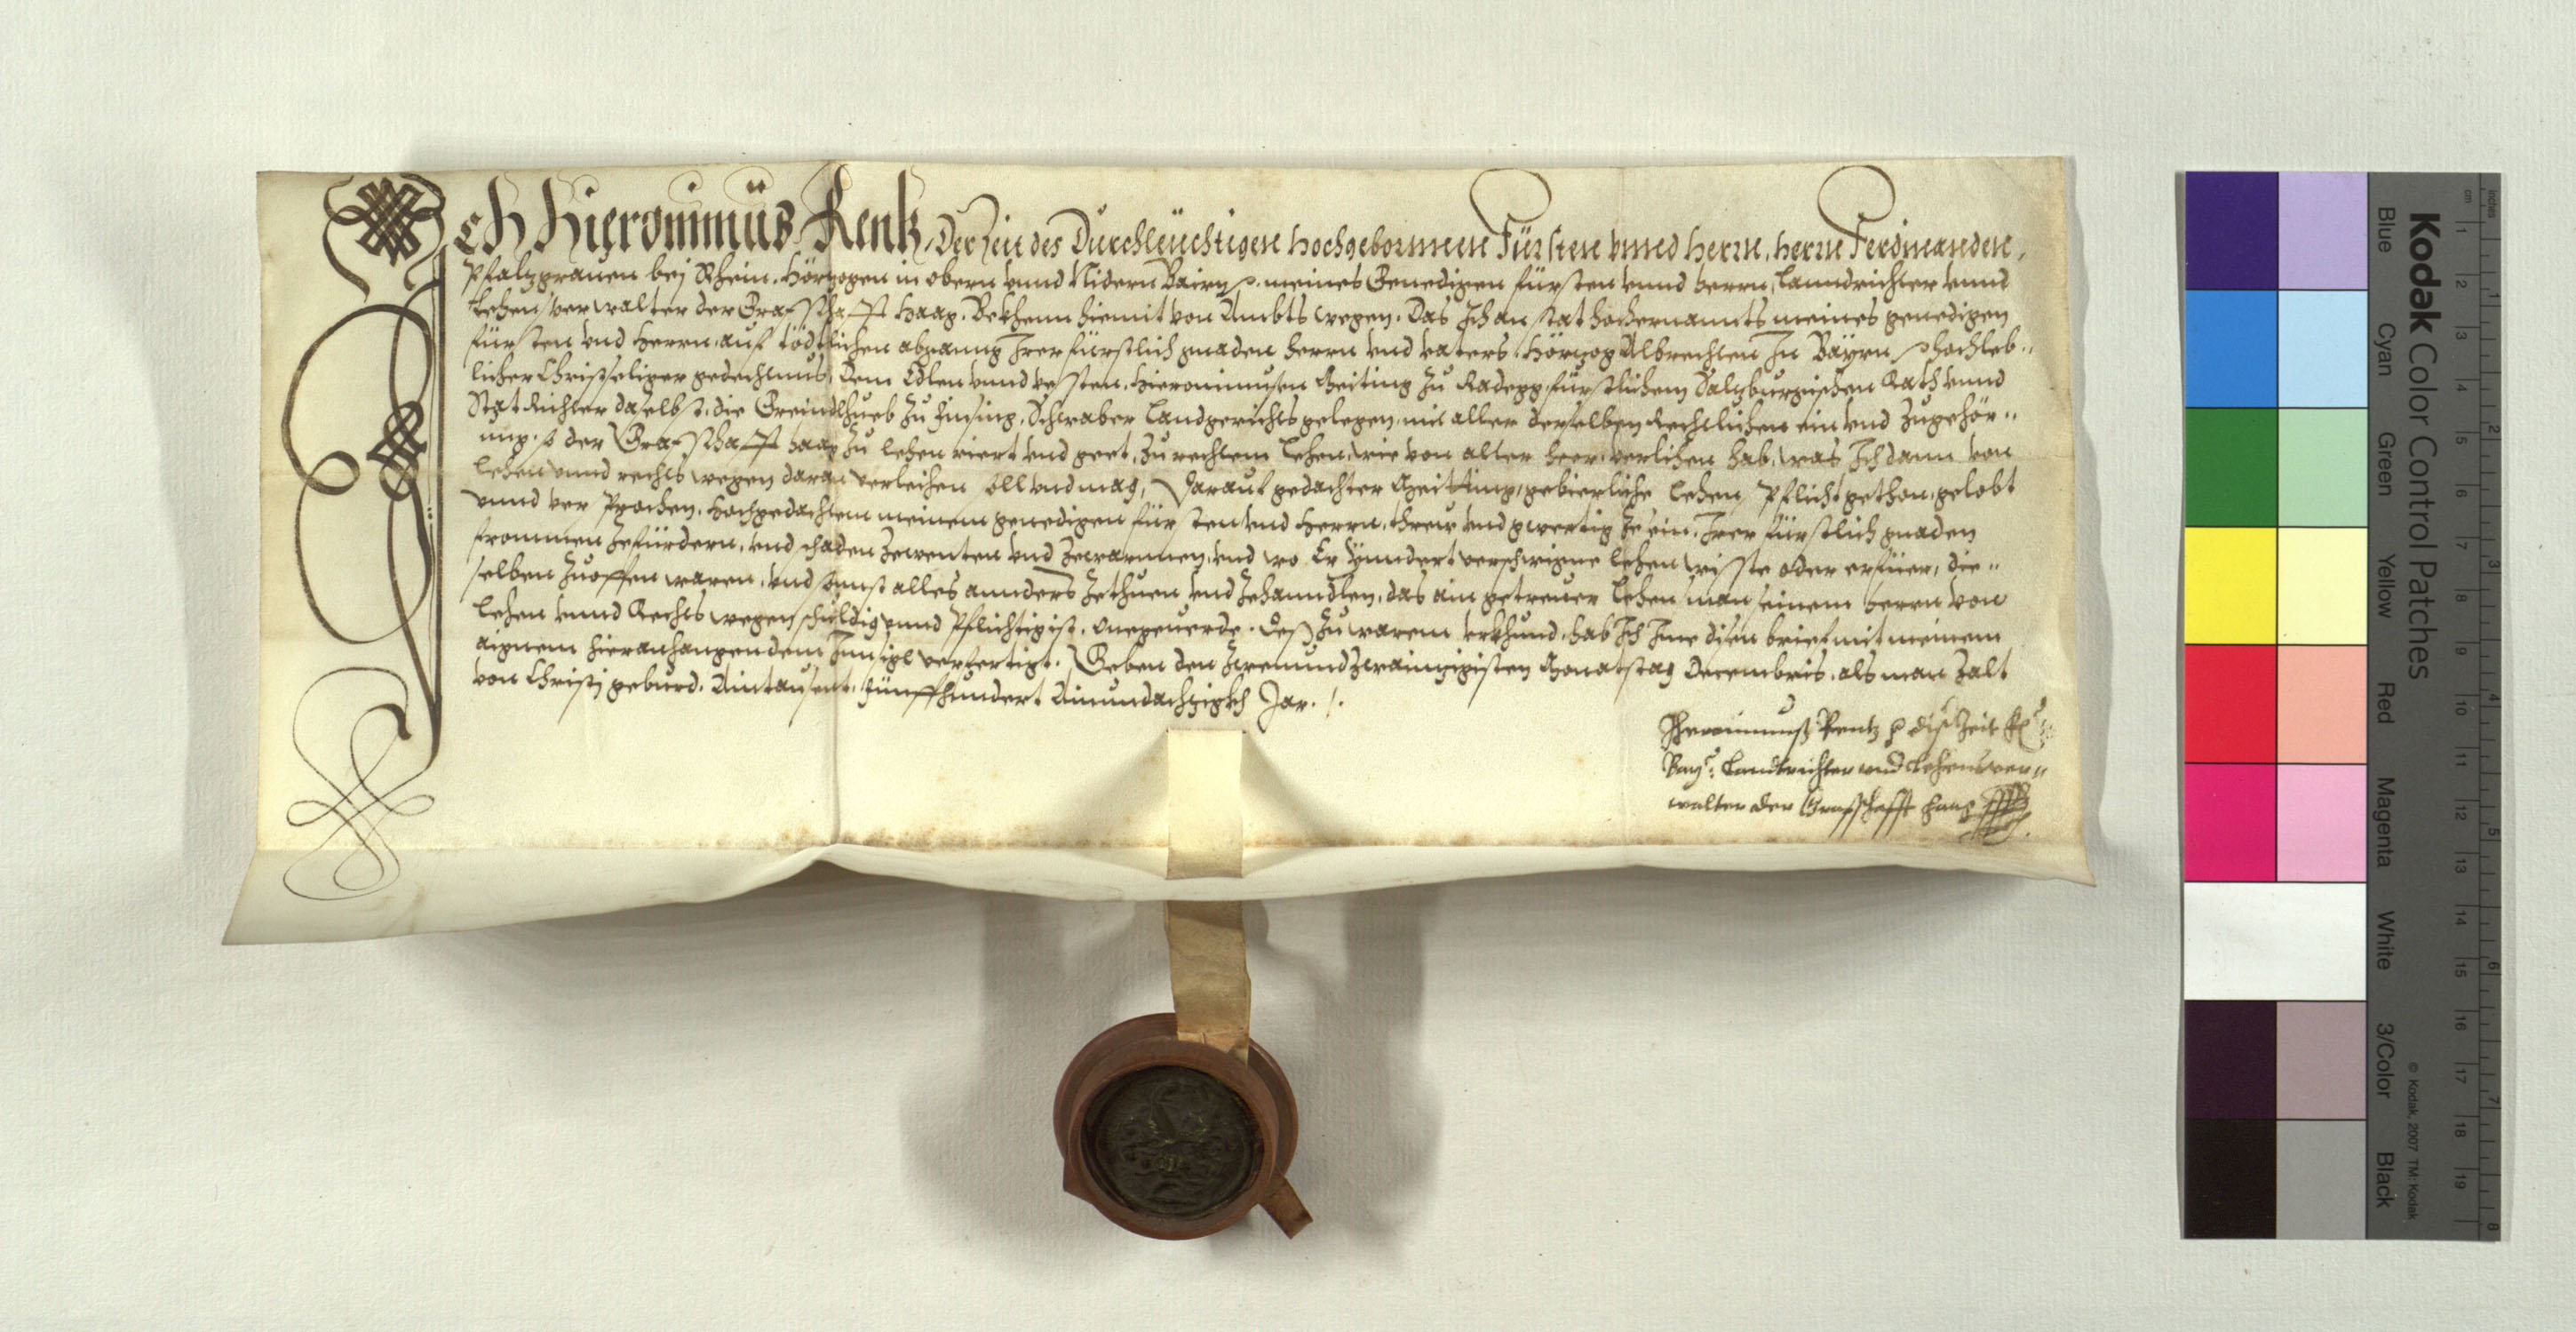 Ich Hieronimus Renk, Der Zeit des Durchleuchtigen hochgebornnen Fürsten unnd herrn, herrn Ferdinanden,
Pfalzgrauen bej Rhein, Hörzogen in obern unnd Nidern Bairn etc. meines Genedigen fürsten unnd herrn, Lanndrichter unnd
Lehen verwalter der Grafschafft Haag, Bekhenn hiemit von Ambts wegen, Das Ich an stat hochernannts meines genedigen
fürsten vnd Herrn, auf tödtlichen abganng Irer fürstlich gnaden herrn vnd vaters, Hörzog Albrechten In Bayrn etc. hochleb„
licher Christseliger gedechtnus, Dem Edlen unnd vesten, Hieronimusen Geiting zu Radegg, fürstlichem Salzburgischen Rath unnd
Stat Richter daselbst, die Greindlhueb zu, Schwaber Landgerichts gelegen, mit aller derselben Rechtlichen ein vnd zugehör„
ung, so der Grafschafft haag zu lehen riert vnd geet, zu rechtem Lehen, wie von alter heer, verlihen hab, was Ich dann von
Lehen unnd rechts wegen daran verleihen soll vnd mag, Darauf gedachter Geitting, gebierliche Lehen Pflicht gethon, gelobt
unnd versprochen, Hochgedachtem meinem genedigen fürsten vnd Herrn, threw vnd gwertig ze sein, Irer fürstlich gnaden
frommen zefürdern, vnd schaden zewenten vnd zewarnnen, vnd wo Er Yenndert verschwigne lehen wisste oder erfüer, die„
selben zuoffenwaren, vnd sonst alles annders zethuen vnd zehanndlen, das ain getreuer Lehenman seinem herrn von
Lehen unnd Rechts wegen schuldig unnd Pflichtig ist, onegeuerde. Deß zu warem vrkhund, hab Ich Ime disen brief mit meinem
aignem hieranhangendem Innsigl verfertigt. Geben den zwenundzwainzigisten Monatstag Decembris, als man zalt
von Christj geburd, Aintausent, fünffhundert Ainundachzigisch Jar. /.
Hieronimuß Rentz diser Zeit
Bay: Landtrichter und Lehensver„
walter der Graffschafft Haag
Kodak Color Control Patches
Blue Cyan Green Yellow Red Magenta White 3/Color Black
© Kodak, 2007 TM: Kodak
cm 1 2 3 4 5 6 7 8 9 10 11 12 13 14 15 16 17 18 19
inches 1 2 3 4 5 6 7 8